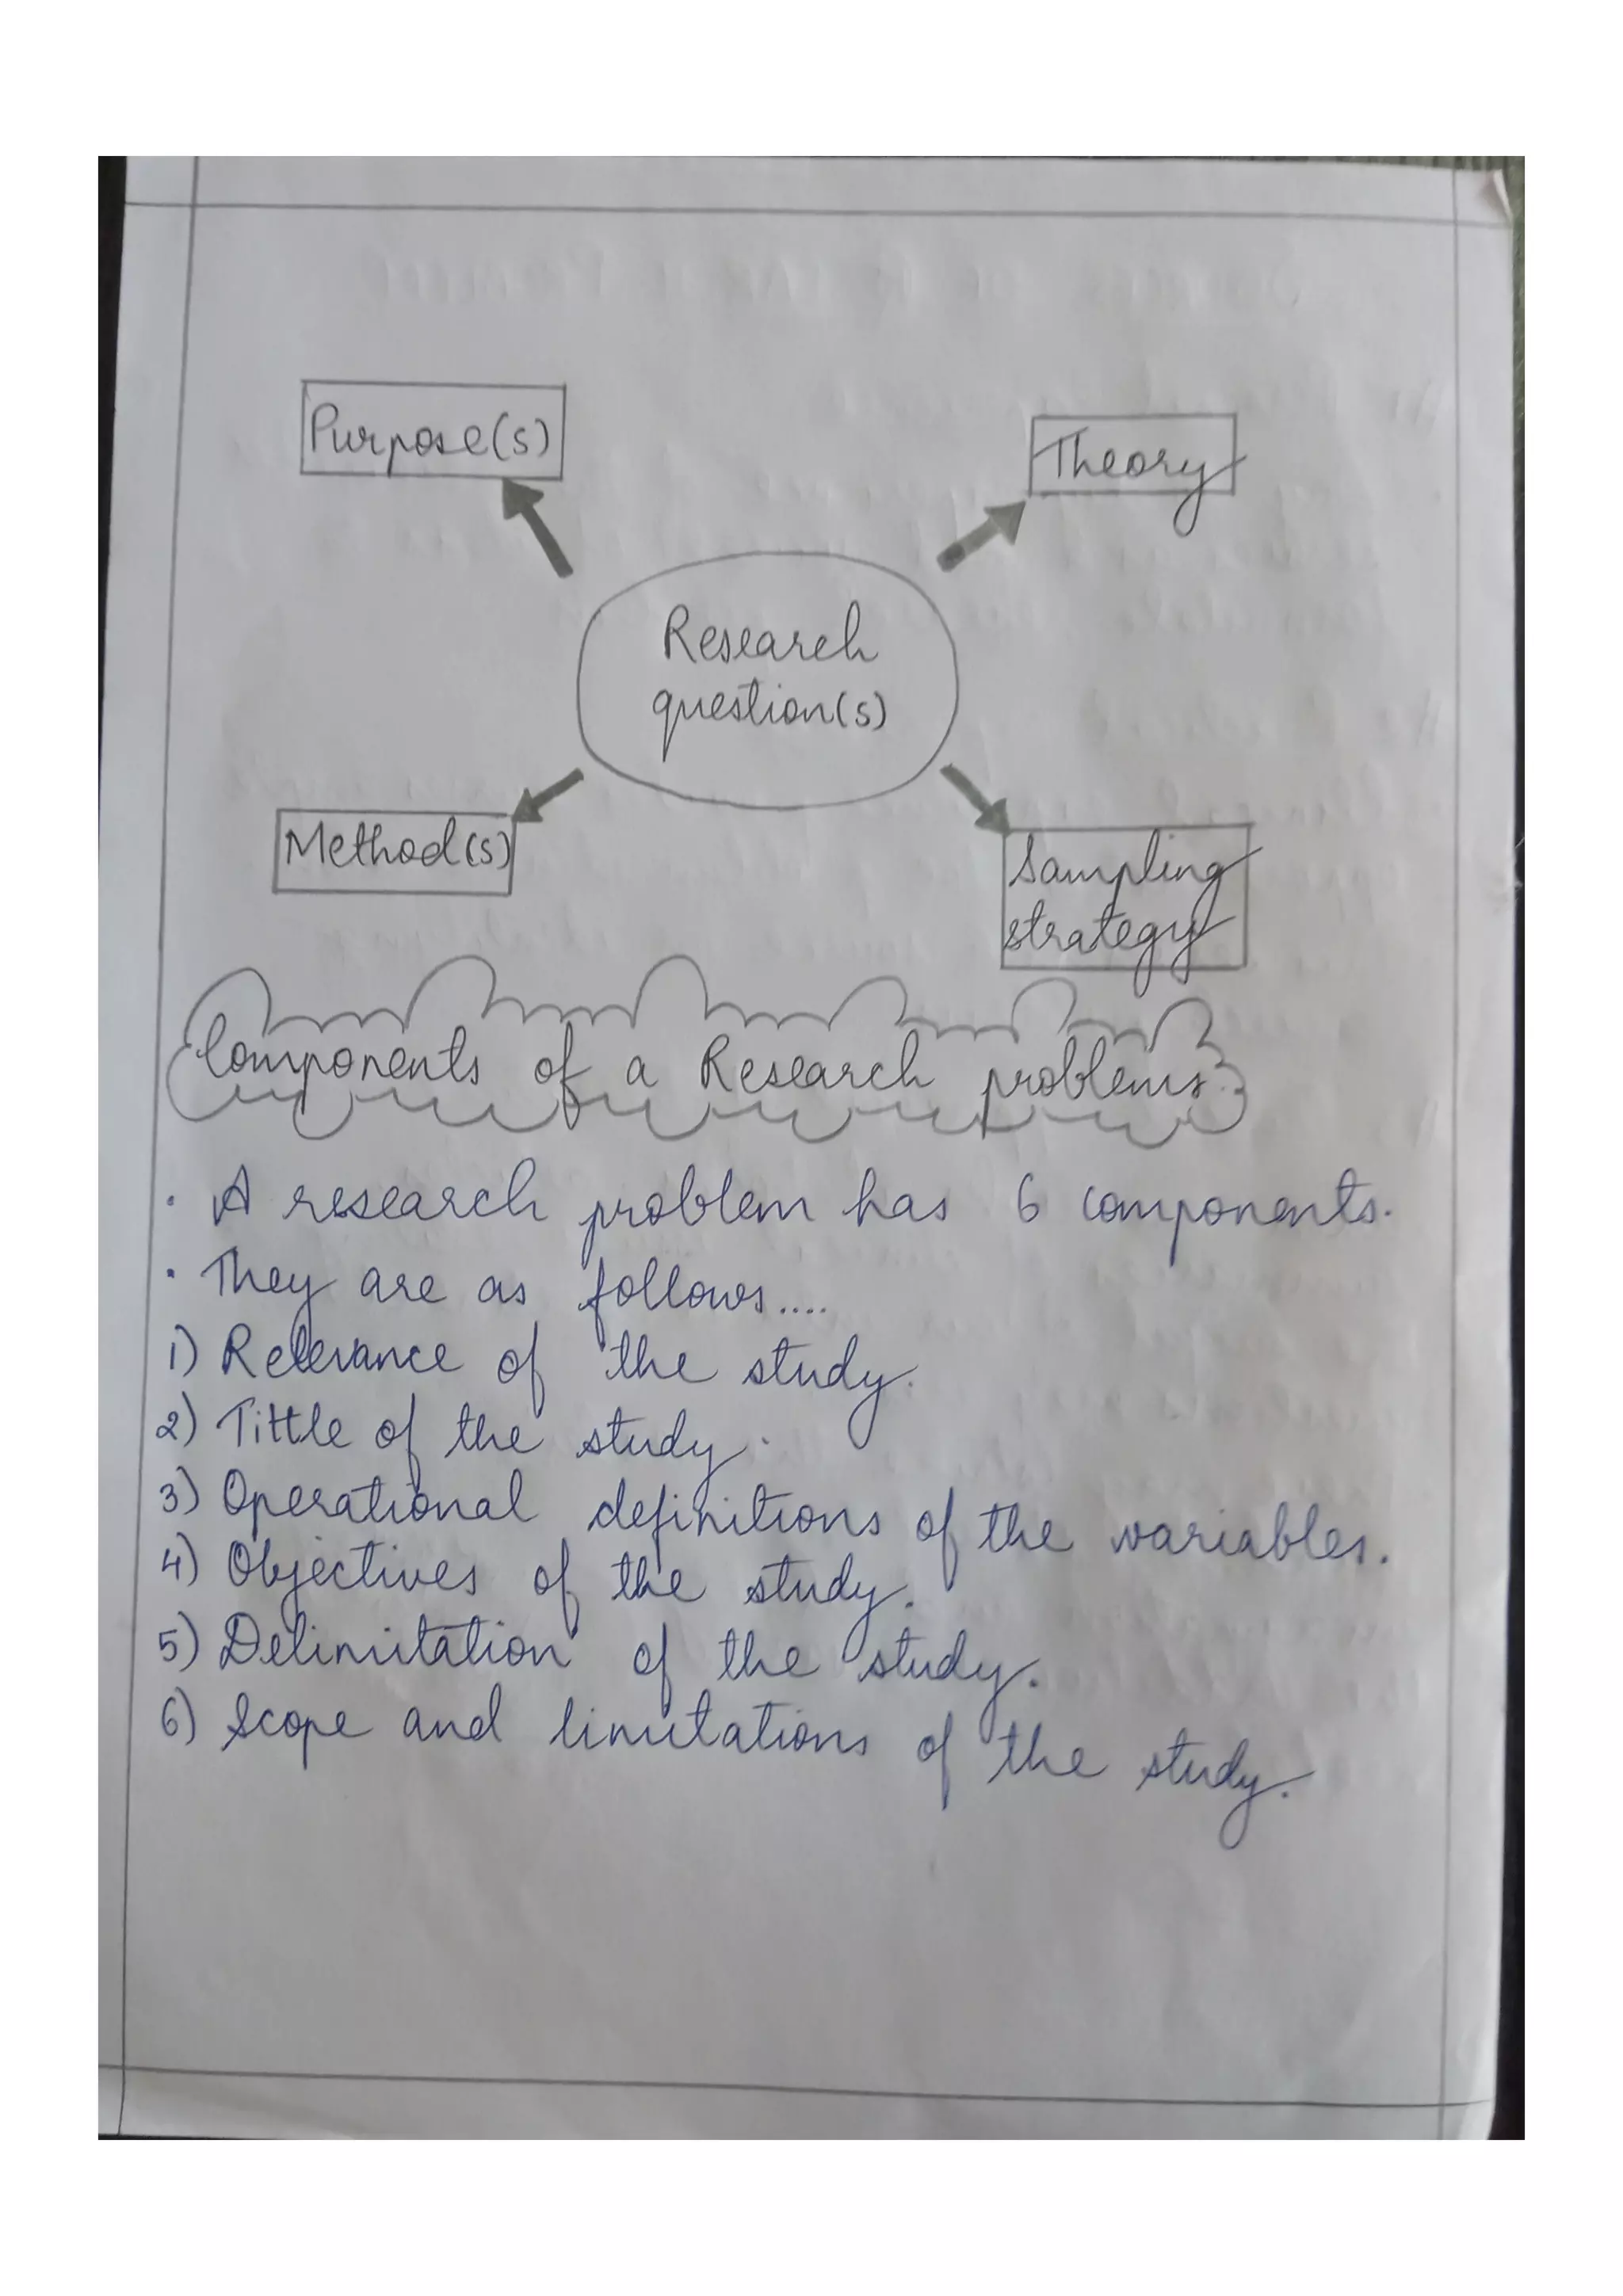 Purpose(s)
Theory
Research
question(s)
Method(s)
Sampling
strategy
Components of a Research problems
· A research problem has 6 components.
· They are as follows....
1) Relevance of the study.
2) Tittle of the study.
3) Operational definitions of the variables.
4) Objectives of the study.
5) Delimitation of the study.
6) Scope and limitations of the study.